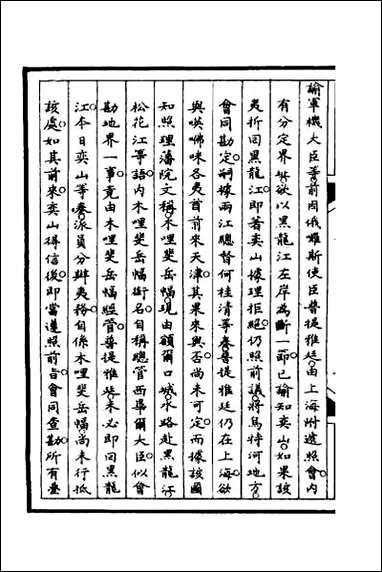 諭軍機大臣等前因俄羅斯使臣普提雅廷由上海州遞照會內
有分定界址欲以黑龍江左岸為斷一節已諭知奕山如果該
夷折回黑龍江即著奕山據理拒絕仍照前議將烏特河地方
會同勘定嗣據兩江總督何桂清等奏普提雅廷仍在上海欲
與嘆咈咪各夷酋前來天津其果來與否尚未可定而據該國
知照理藩院文稱木哩斐岳幅現由額爾口城水路赴黑龍江
松花江等語內木哩斐岳幅銜名自稱總管西畢爾大臣似會
勘地界一事竟由木哩斐岳幅經管普提雅廷未必即回黑龍
江本日奕山等奏派員分辦夷務自係木哩斐岳幅尚未行抵
該處如其前來奕山得信後即當遵照前旨會同查勘所有臺